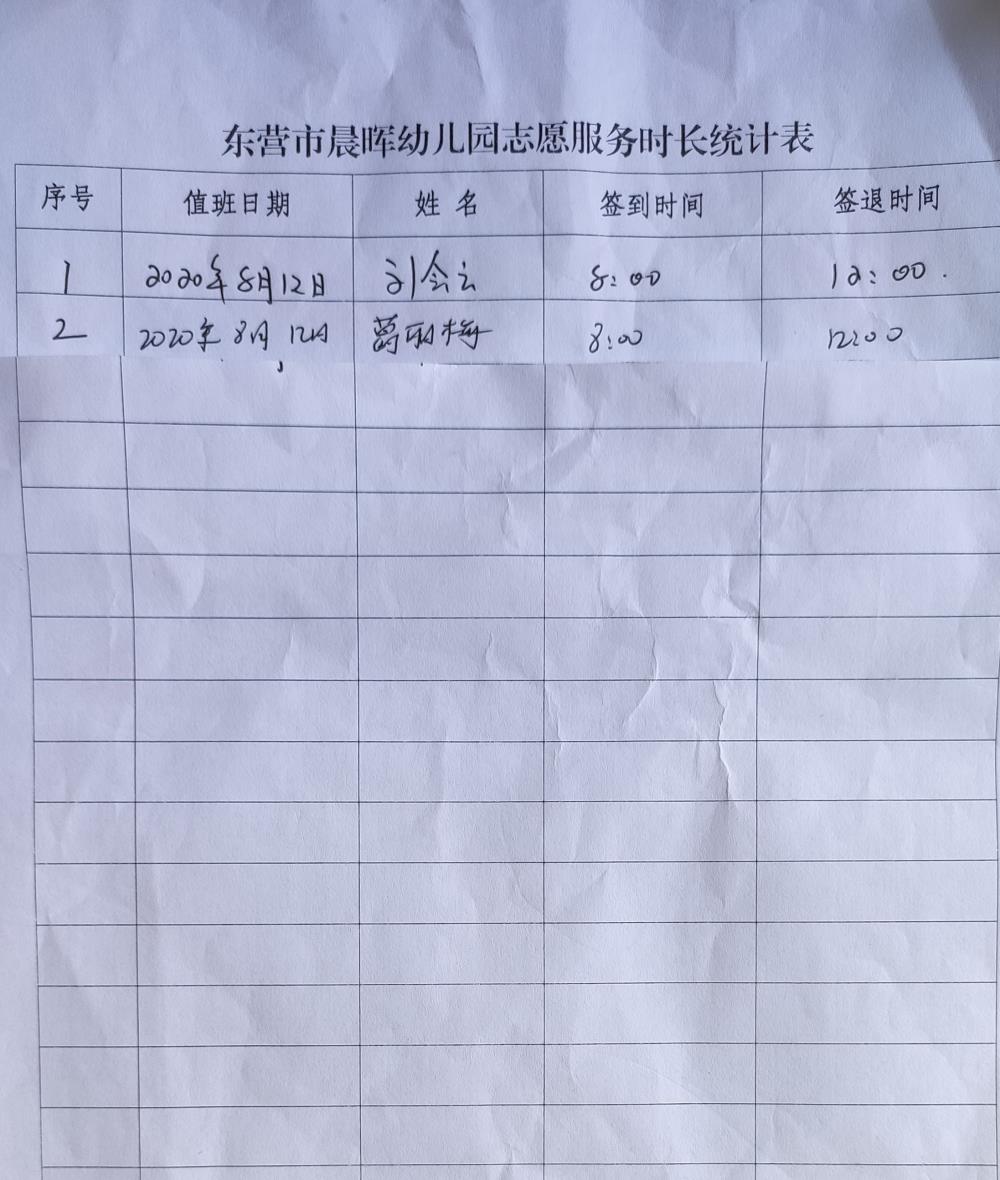 东营市晨晖幼儿园志愿服务时长统计表
序号 值班日期 姓名 签到时间 签退时间
1 2020年8月12日 刘会云 8:00 12:00.
2 2020年8月12日 葛 梅 8:00 12:00